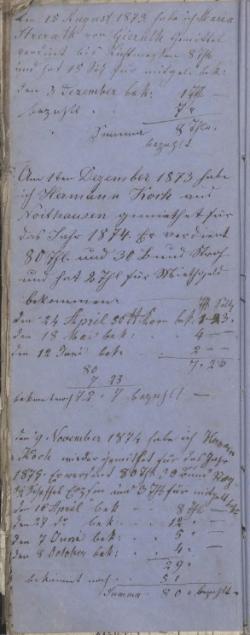 Den 15 August 1873 habe ich Maria
von Gierath gemiethet
verdient bis Christmessen 8 Thlr
und hat 15 Sch für mitgeld bek:
den 3 Dezember bek: 1 Thlr
bezahlt 7 "
Summa 8 Thlr.
bezahlt
Am 1ten Dezember 1873 habe
ich Hermann Kock aus
Noithausen gemiethet für
das Jahr 1874. Er verdient
80 Thl. und 30 Bund Stroh
und hat 2 Thl für Miethgeld
bekommen.
den 24 April 20 bek. 1-23.
den 18 Mai bek: 4 —
den 12 Juni bek: 2 —
7.23
80
7 23
bekmt noch 72. 7 bezahlt —
den 9. November 1874 habe ich Hermann
Kock wieder gemiethet für das Jahr
1875. Er verdient 80 Th 30 Bund
und
den 10 April bek 8 Th —
den 27 do. bek: 12 —
den 7 Juni bek: 5 —
den 8 October bek: 4 —
29.
bekommt noch 51
Summa 80 bezahlt —